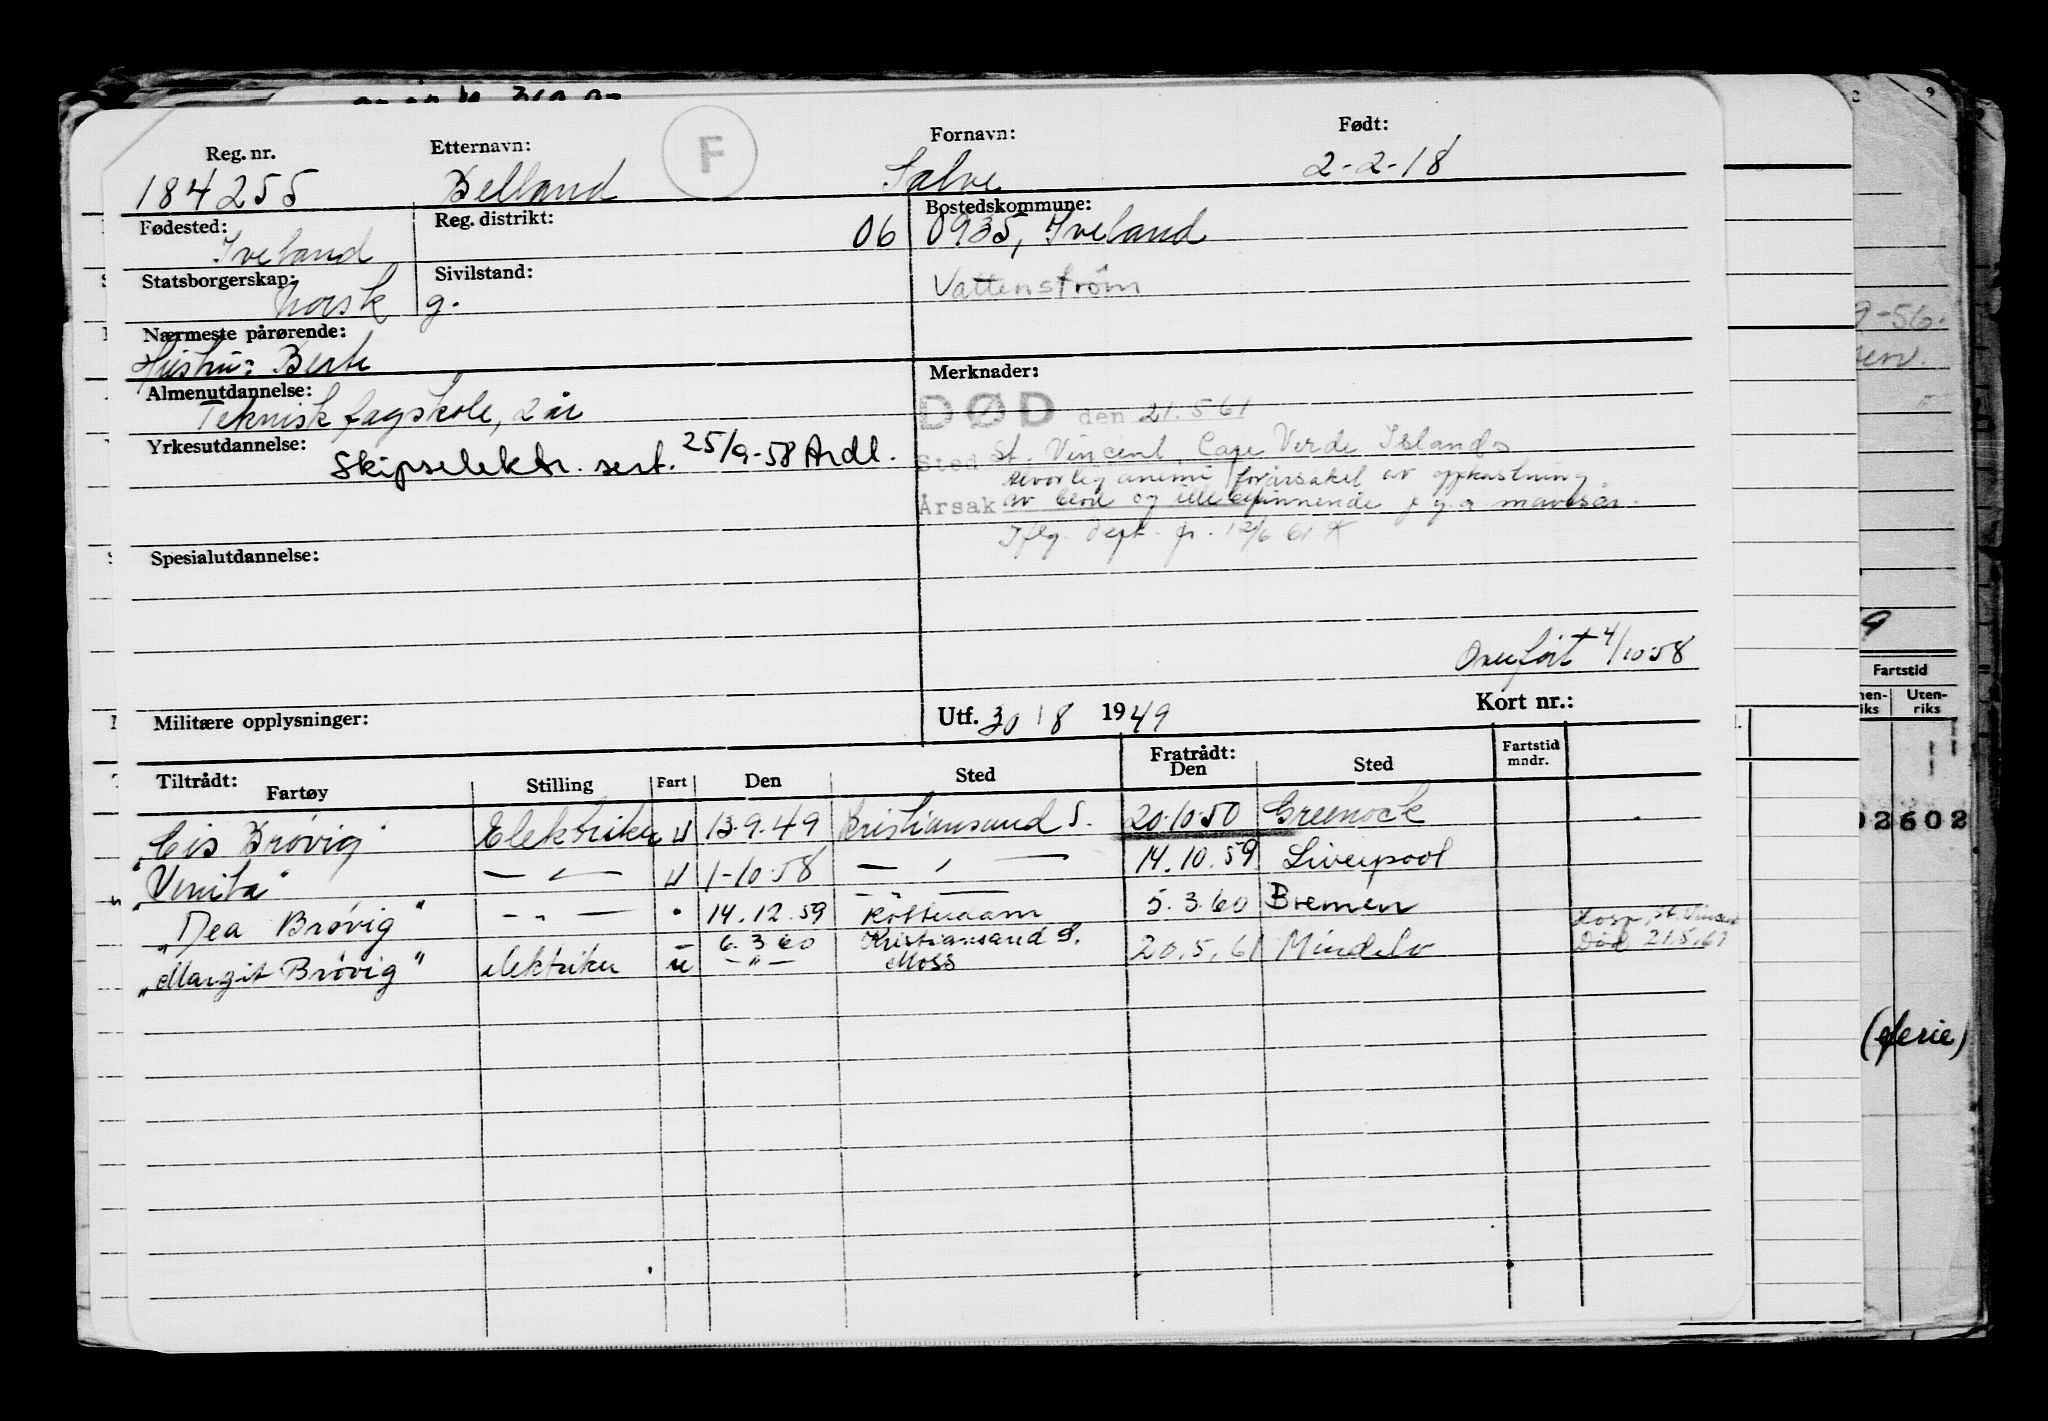 F
Reg. nr. Etternavn: Fornavn: Født:
184255 Belland Salve 2-2-18
Fødested: Reg. distrikt: Bostedskommune:
Iveland 06 0935, Iveland
Statsborgerskap: Sivilstand:
norsk g. Vattenstrøm
Nærmeste pårørende:
Hustru: Berte
Almenutdannelse: Merknader:
Teknisk fagskole, 2 år DØD den 21.5.61
Yrkesutdannelse:
Skipselektr. sert. 25/9-58 Ardl. Sted St. Vincent, Cape Verde Islands
alvorlig anemi forårsaket av oppkastning
Årsak av blod og illebefinnende p.g.a. mavesår.
Iflg. dept. 12/6 61
Spesialutdannelse:
Overført 4/10-58
Militære opplysninger: Utf. 30/8 1949 Kort nr.:
Tiltrådt: Fratrådt:
Fartøy Stilling Fart Den Sted Den Sted Fartstid mndr.
"Cis Brøvig" Elektriker U 13.9.49 Kristiansand S. 20.10.50 Greenock
"Vinita" — " — U 1-10-58 — " — 14.10.59 Liverpool
"Dea Brøvig" - " - " 14.12.59 Rotterdam 5.3.60 Bremen
6.3.60 Kristiansand S. Hosp. St. Vincent
"Margit Brøvig" elektriker u - " - Moss 20.5.61 Mindelo Død 21.5.61
9-56.
9
Fartstid
Uten-
riks
02602
(ferie)